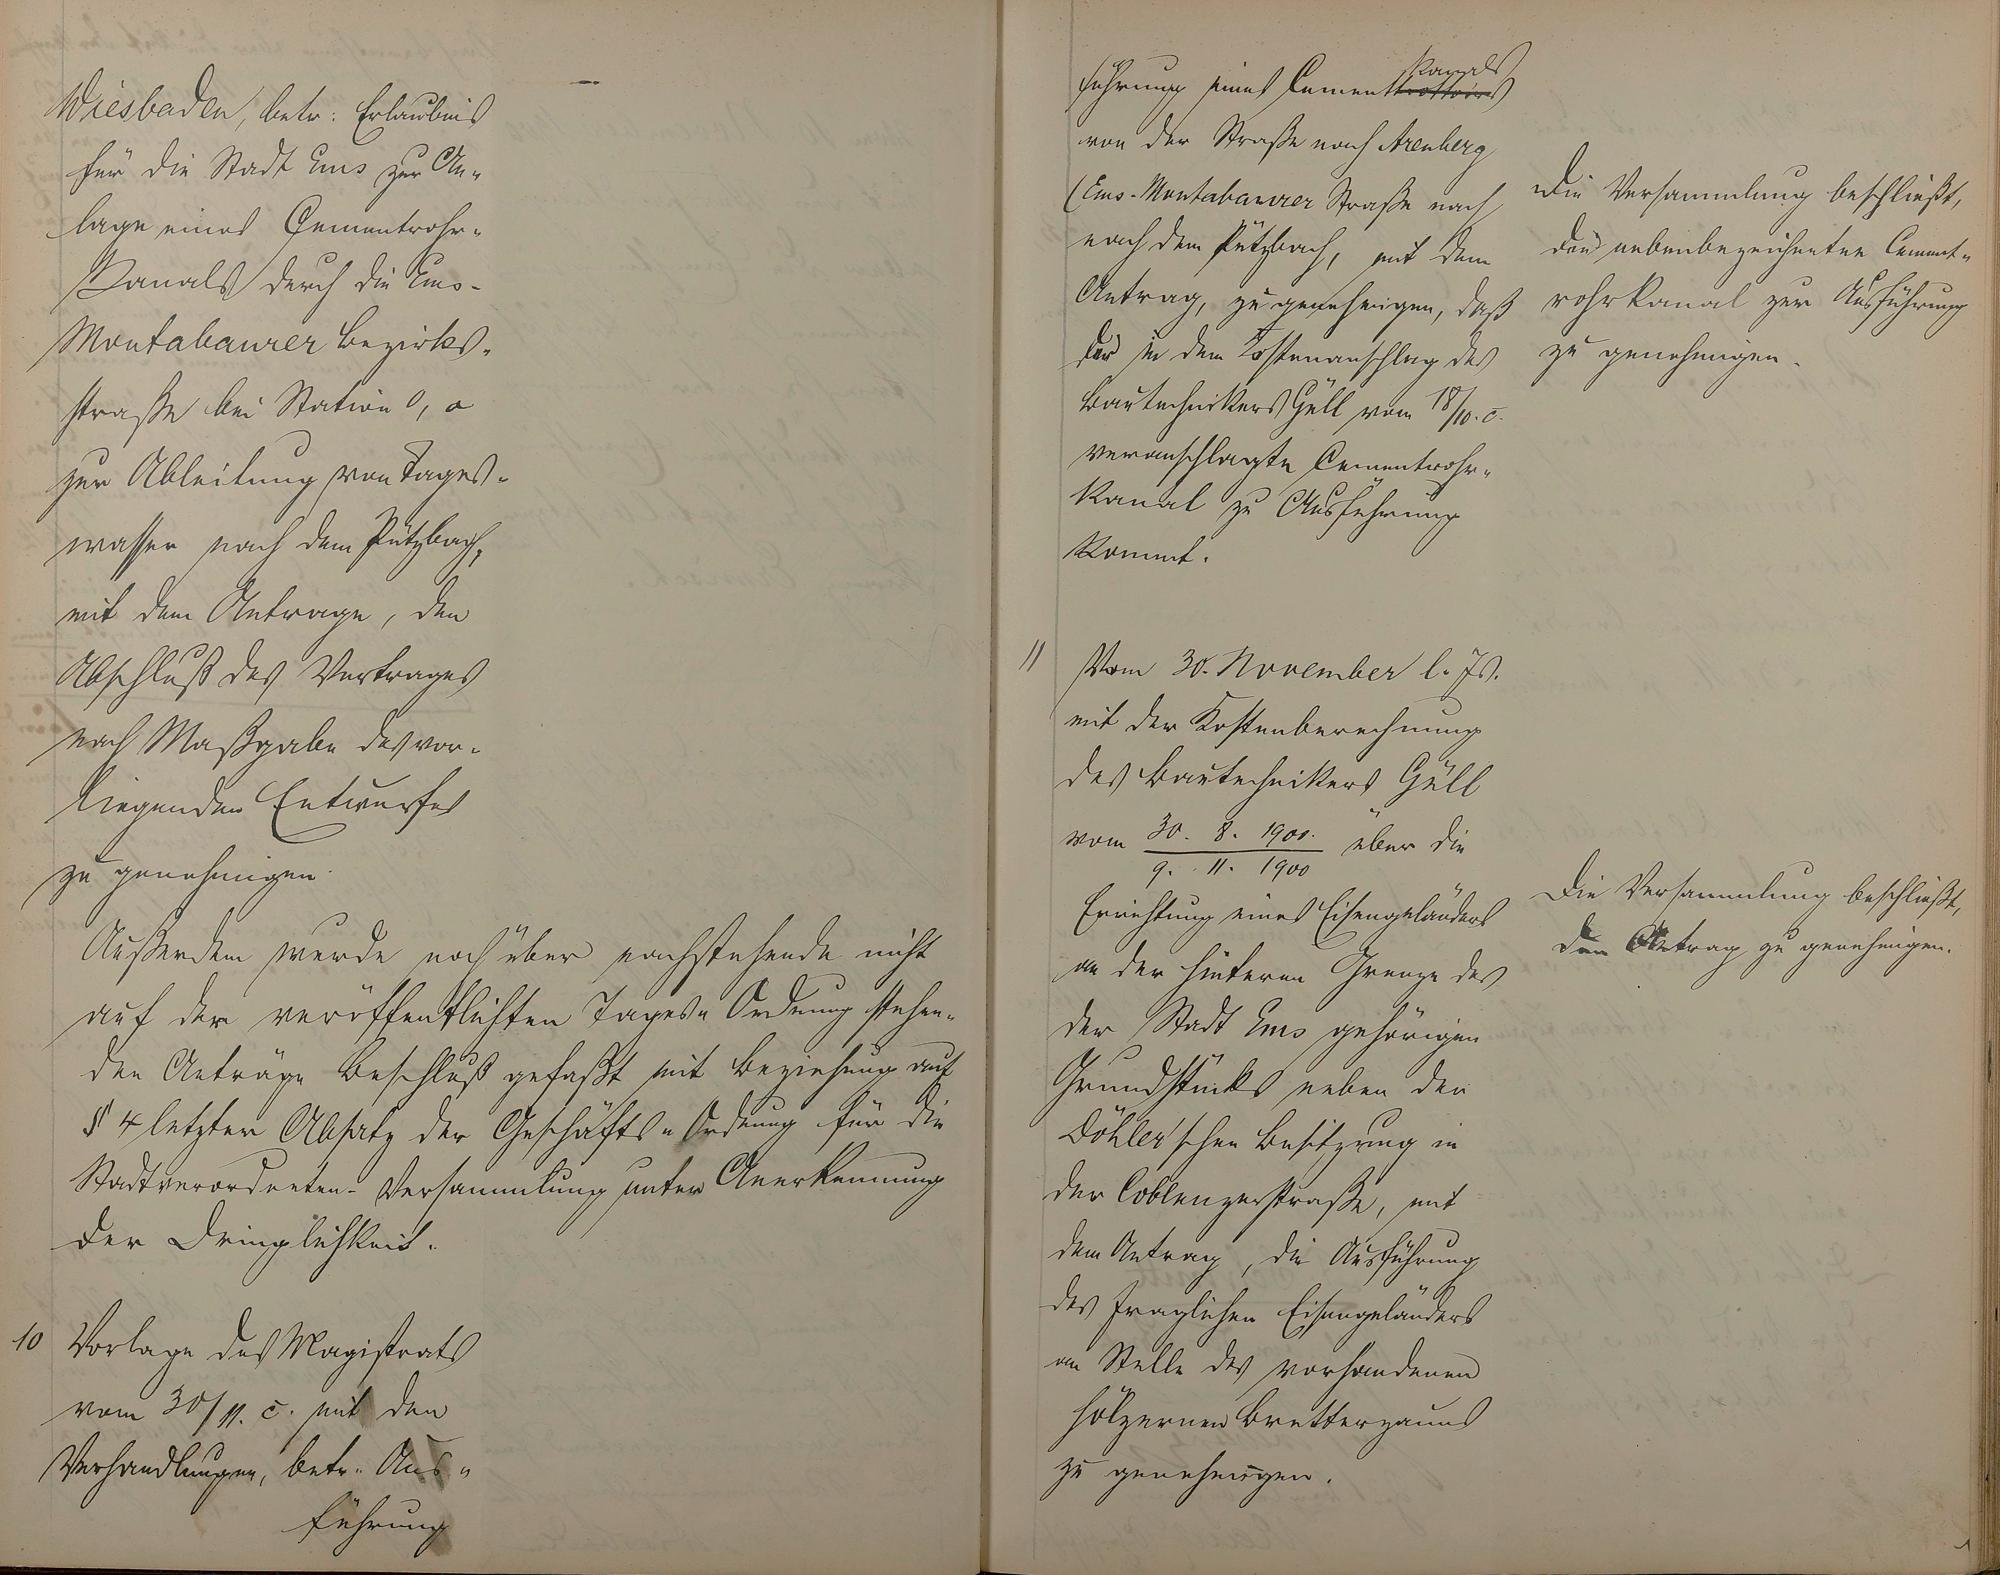 Wiesbaden, betr: Erlaubnis
für die Stadt Ems zur An-
lage eines Cementrohr-
Kanals durch die Ems-
Montabaurer Bezirks-
straße bei Station 0,0
zur Ableitung von Tages-
wasser nach dem Pützbach,
mit dem Antrage, den
Abschluß des Vertrages
nach Maßgabe des vor-
liegenden Entwurfes
zu genehmigen.
Außerdem wurde noch über nachstehende nicht
auf der veröffentlichten Tages-Ordnung stehen-
den Anträge Beschluß gefaßt mit Beziehung auf
§ 4 letzter Absatz der Geschäfts-Ordnung für die
Stadtverordneten-Versammlung unter Anerkennung
der Dringlichkeit.
10 Vorlage des Magistrats
vom 30/11. c. mit den
Verhandlungen, betr. Aus-
führung
führung eines Cementtrottoirs Kanals
von der Straße nach Arenberg
(Ems-Montabaurer Straße nach
nach dem Pützbach, mit dem
Antrag, zu genehmigen, daß
der in dem Kostenanschlag des
Bautechnikers Güll vom 18/10. c.
veranschlagte Cementrohr-
Kanal zu Ausführung
kommt.
Die Versammlung beschließt,
den nebenbezeichneten Cement-
rohrkanal zur Ausführung
zu genehmigen.
11 Vom 30. November l. Js.
mit der Kostenberechnung
des Bautechnikers Güll
vom 30. 8. 1900. über die
9. 11. 1900
Errichtung eines Eisengeländers
an der hinteren Grenze des
der Stadt Ems gehörigen
Grundstücks neben der
Döhler'schen Besitzung in
der Coblenzerstraße, mit
dem Antrag, die Ausführung
des fraglichen Eisengeländers
an Stelle des vorhandenen
hölzernen Bretterzauns
zu genehmigen.
Die Versammlung beschließt,
den Antrag zu genehmigen.